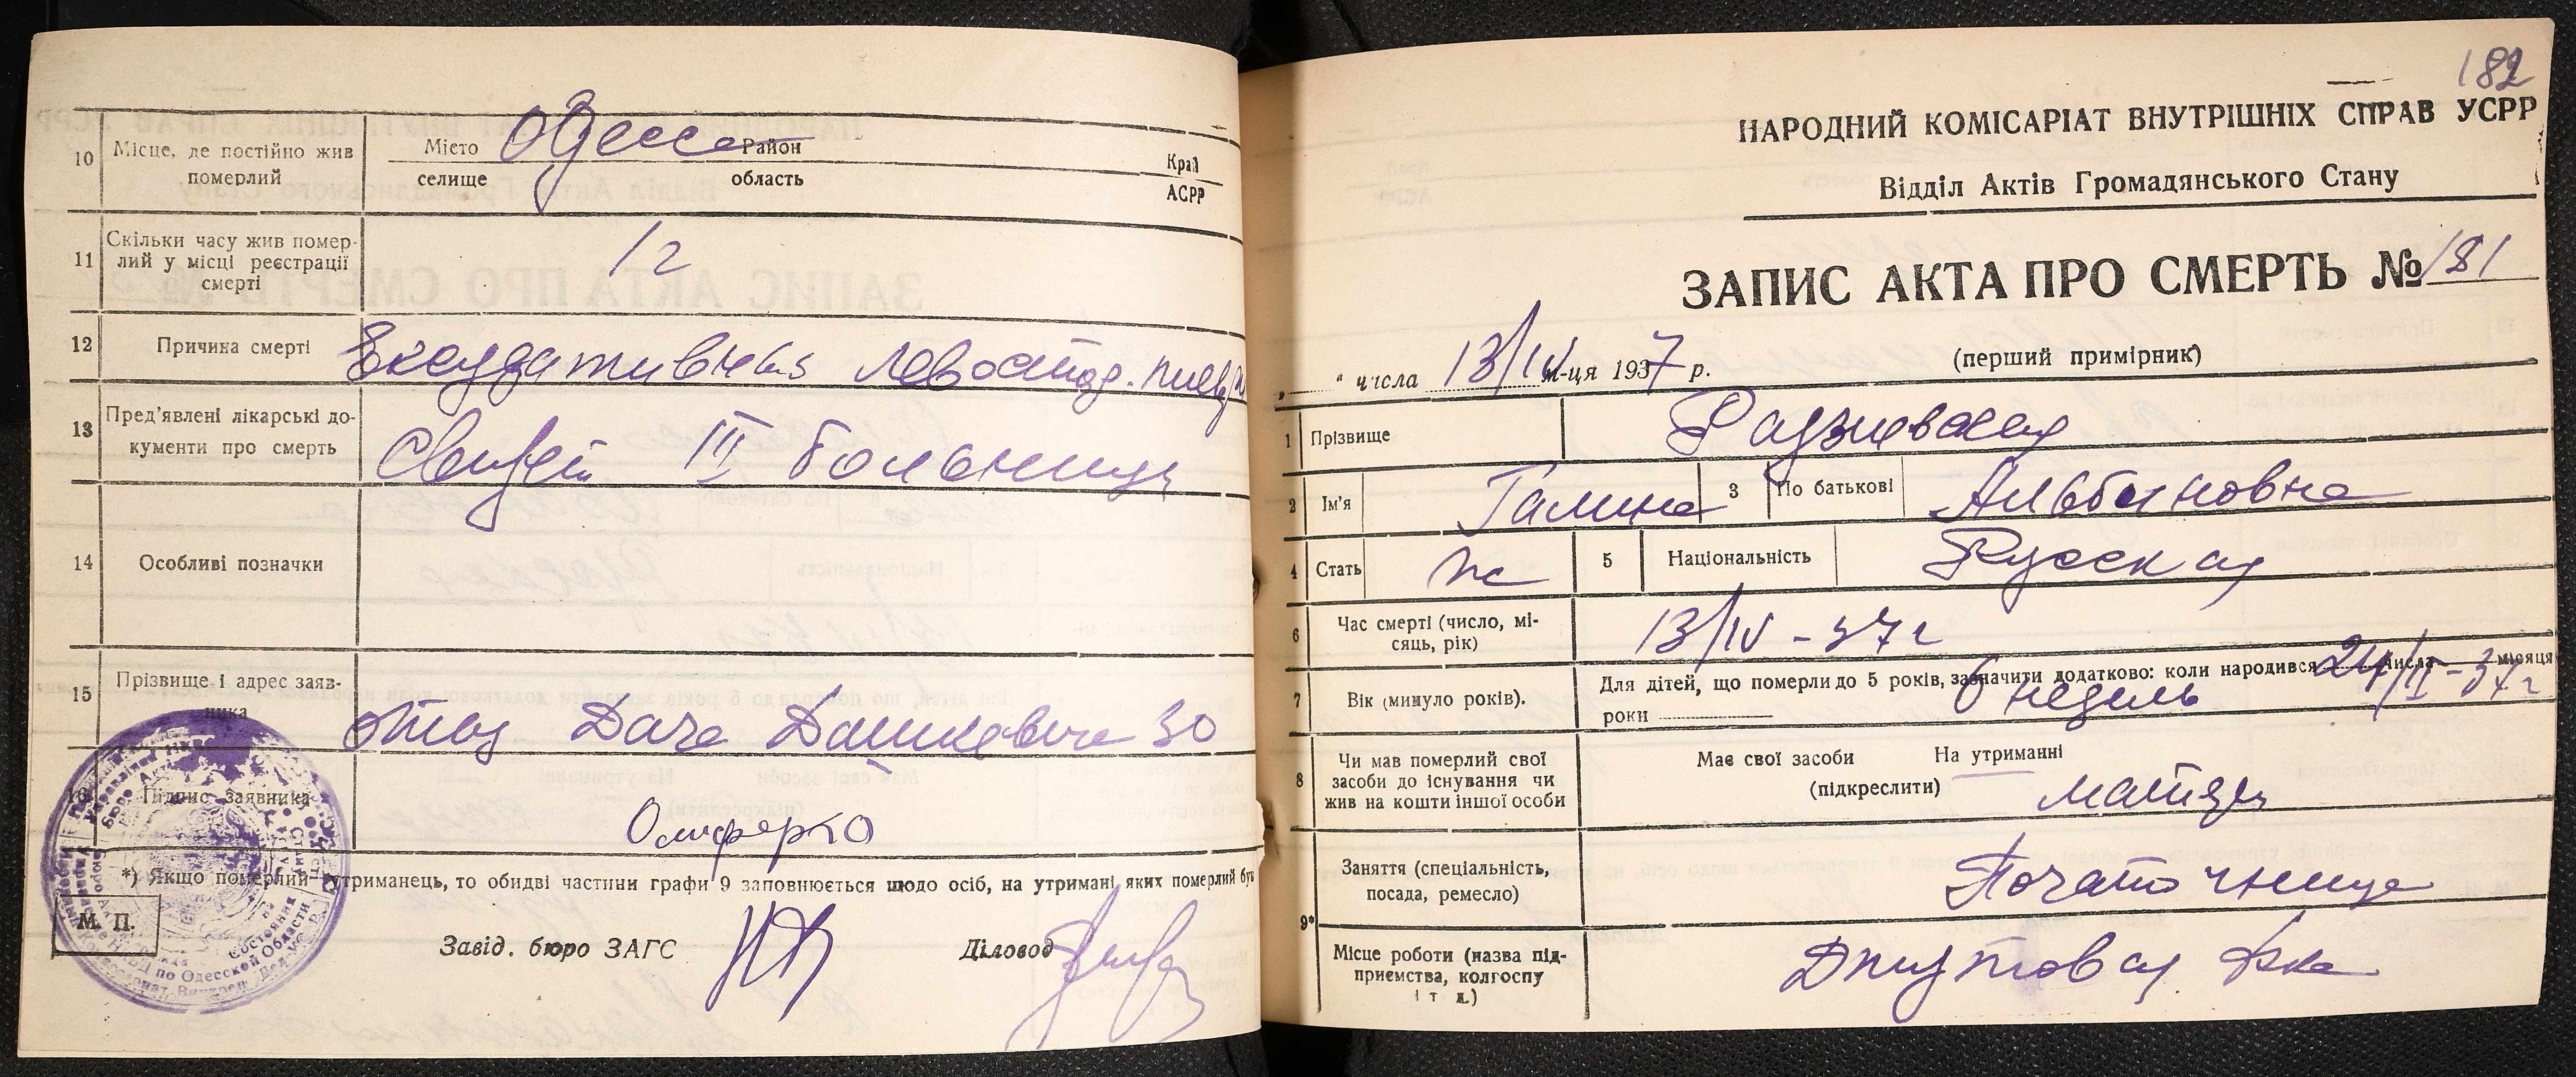 10
Місце, де постійно жив
померлий
Місто Одесса Район
селище область
Край
АСРР
11
Скільки часу жив помер-
лий у місці реєстрації
смерті
12
Причина смерті
Ексудативная левостор.
13
Пред'явлені лікарські до-
кументи про смерть
III больницы
14
Особливі позначки
15
Прізвище і адрес заяв-
ника
Дача Дашкевича 30
16
Підпис заявника
*) Якщо померлий утриманець, то обидві частини графи 9 заповнюється щодо осіб, на утримані яких померлий був
М. П.
Завід. бюро ЗАГС
Діловод
182
НАРОДНИЙ КОМІСАРІАТ ВНУТРІШНІХ СПРАВ УСРР
Відділ Актів Громадянського Стану
ЗАПИС АКТА ПРО СМЕРТЬ № 181
(перший примірник)
„ " числа 13/IV м-ця 1937 р.
1 Прізвище Радзиевская
2 Ім'я Галина 3 По батькові Альбиновна
4 Стать ж 5 Національність Русская
6
Час смерті (число, мі-
сяць, рік)
13/IV - 37 г
7
Вік (минуло років).
Для дітей, що померли до 5 років, зазначити додатково: коли народився 24/II - 37 г числа місяця
роки
6 недель
8
Чи мав померлий свої
засоби до існування чи
жив на кошти іншої особи
Має свої засоби На утриманні
(підкреслити)
матери
9*
Заняття (спеціальність,
посада, ремесло)
Початочница
Місце роботи (назва під-
приємства, колгоспу
і т д.)
Джутовая ф-ка